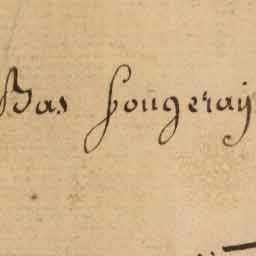 Bas fougeray